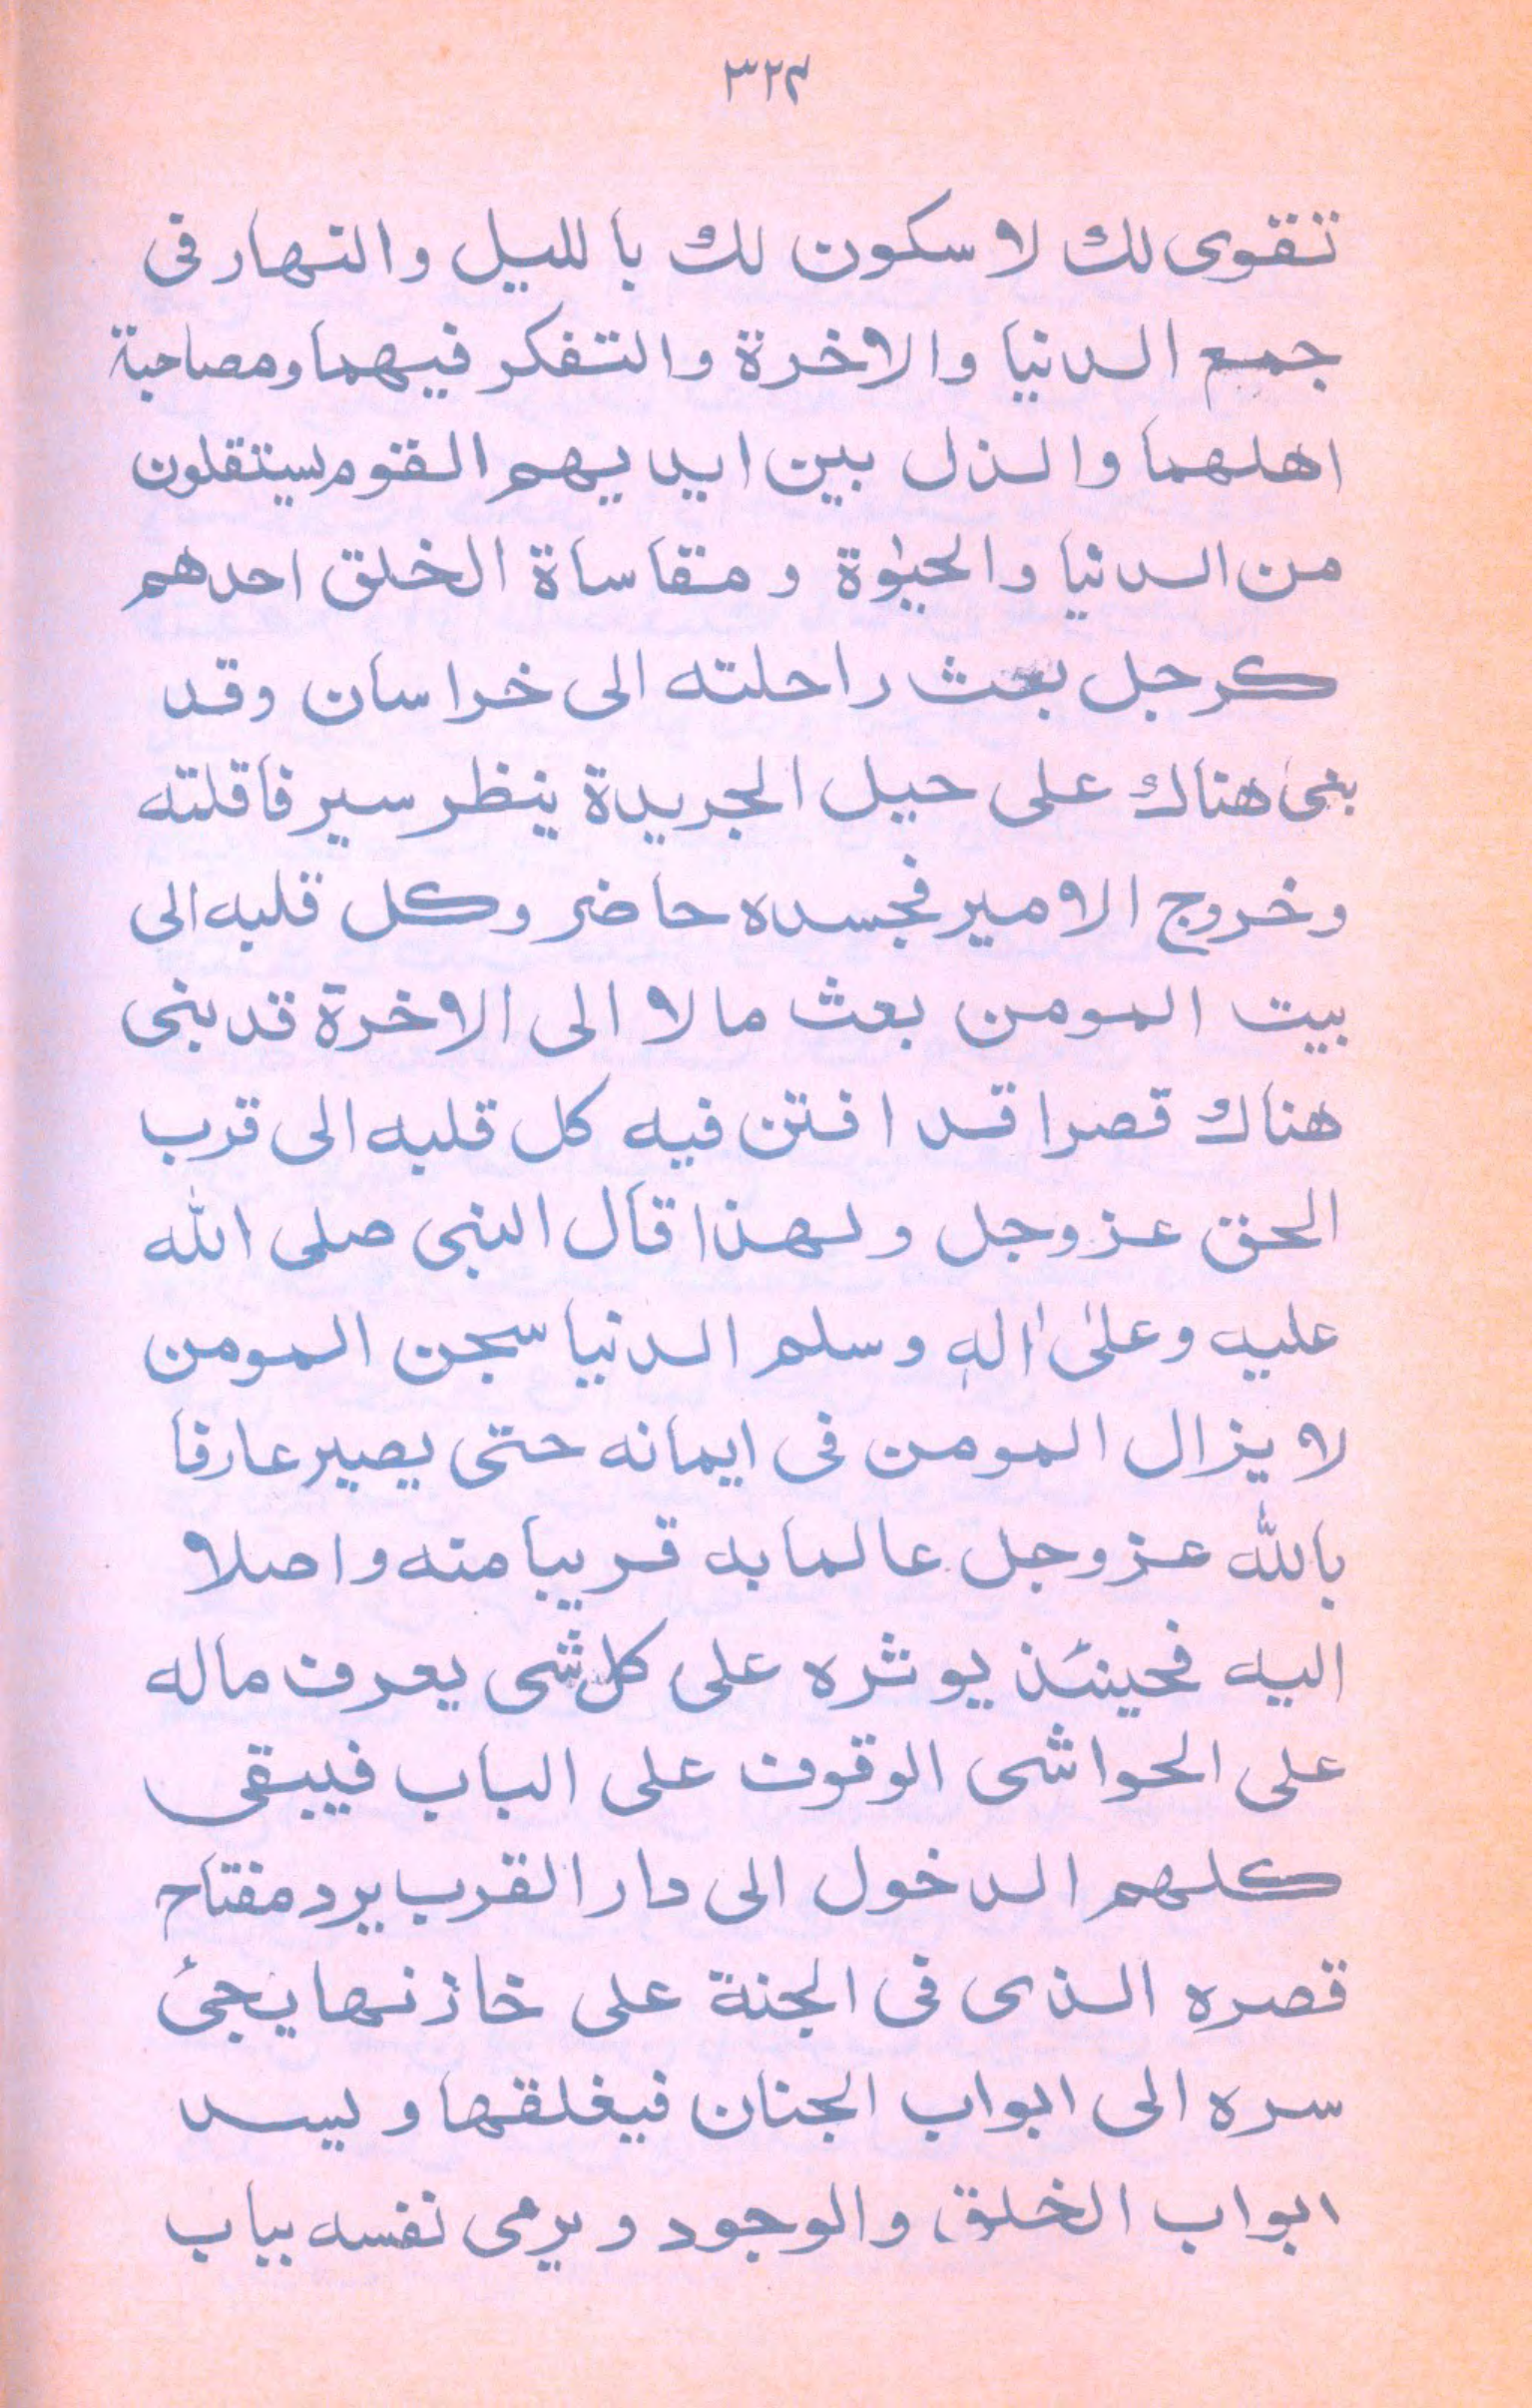 ٣٢٤
تقوى لك لا سكون لك بالليل والنهار فى
جمع الدنيا والاخرة والتفكر فيهما ومصاحبة
اهلهما والذل بين ايديهم القوم يستقلون
من الدنيا والحيٰوة ومقاساة الخلق احدهم
كرجل بعث راحلته الى خراسان وقد
بنى هناك على حيل الجريدة ينظر سير قافلته
وخروج الامير فجسده حاضر وكل قلبه الى
بيت المومن بعث مالا الى الاخرة قد بنى
هناك قصرا قد افتن فيه كل قلبه الى قرب
الحق عزوجل ولهذا قال النبى صلى الله
عليه وعلىٰ اٰلهٖ وسلم الدنيا سجن المومن
لا يزال المومن فى ايمانه حتى يصير عارفا
بالله عزوجل عالما به قريبا منه واصلا
اليه فحينئذ يوثره على كل شى يعرف ماله
على الحواشى الوقوف على الباب فيبقى
كلهم الدخول الى دار القرب يرد مفتاح
قصره الذى فى الجنة على خازنها يجئ
سره الى ابواب الجنان فيغلقها ويسد
ابواب الخلق والوجود ويرمى نفسه بباب